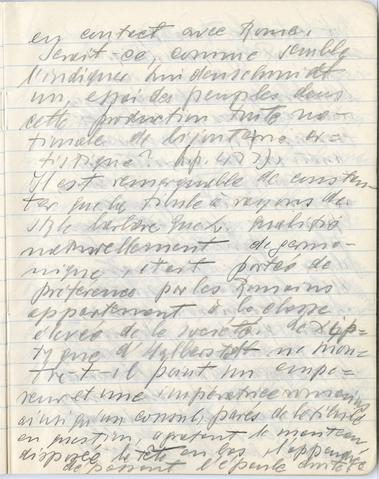 en contact avec Rome.
Serait-ce, comme semble
l'indiquer Lindenschmidt
un, essai des peuples dans
cette production toute na-
tionale de bijouterie ar-
tistique?
Il est remarquable de consta-
ter que la fibule à rayons de
style barbare que L. qualifie
naturellement de germa-
nique, était portée de
préférence par les Romains
appartenant à la classe
élevée de la société. Le Dip-
tyque d'Halberstadt ne mon-
tre-t-il point un empe-
reur et une impératrice romains
ainsi qu'un consul, parés de la fibule
en question, agrafant le manteau
disposée la tête en bas,
dépassant l'épaule droite